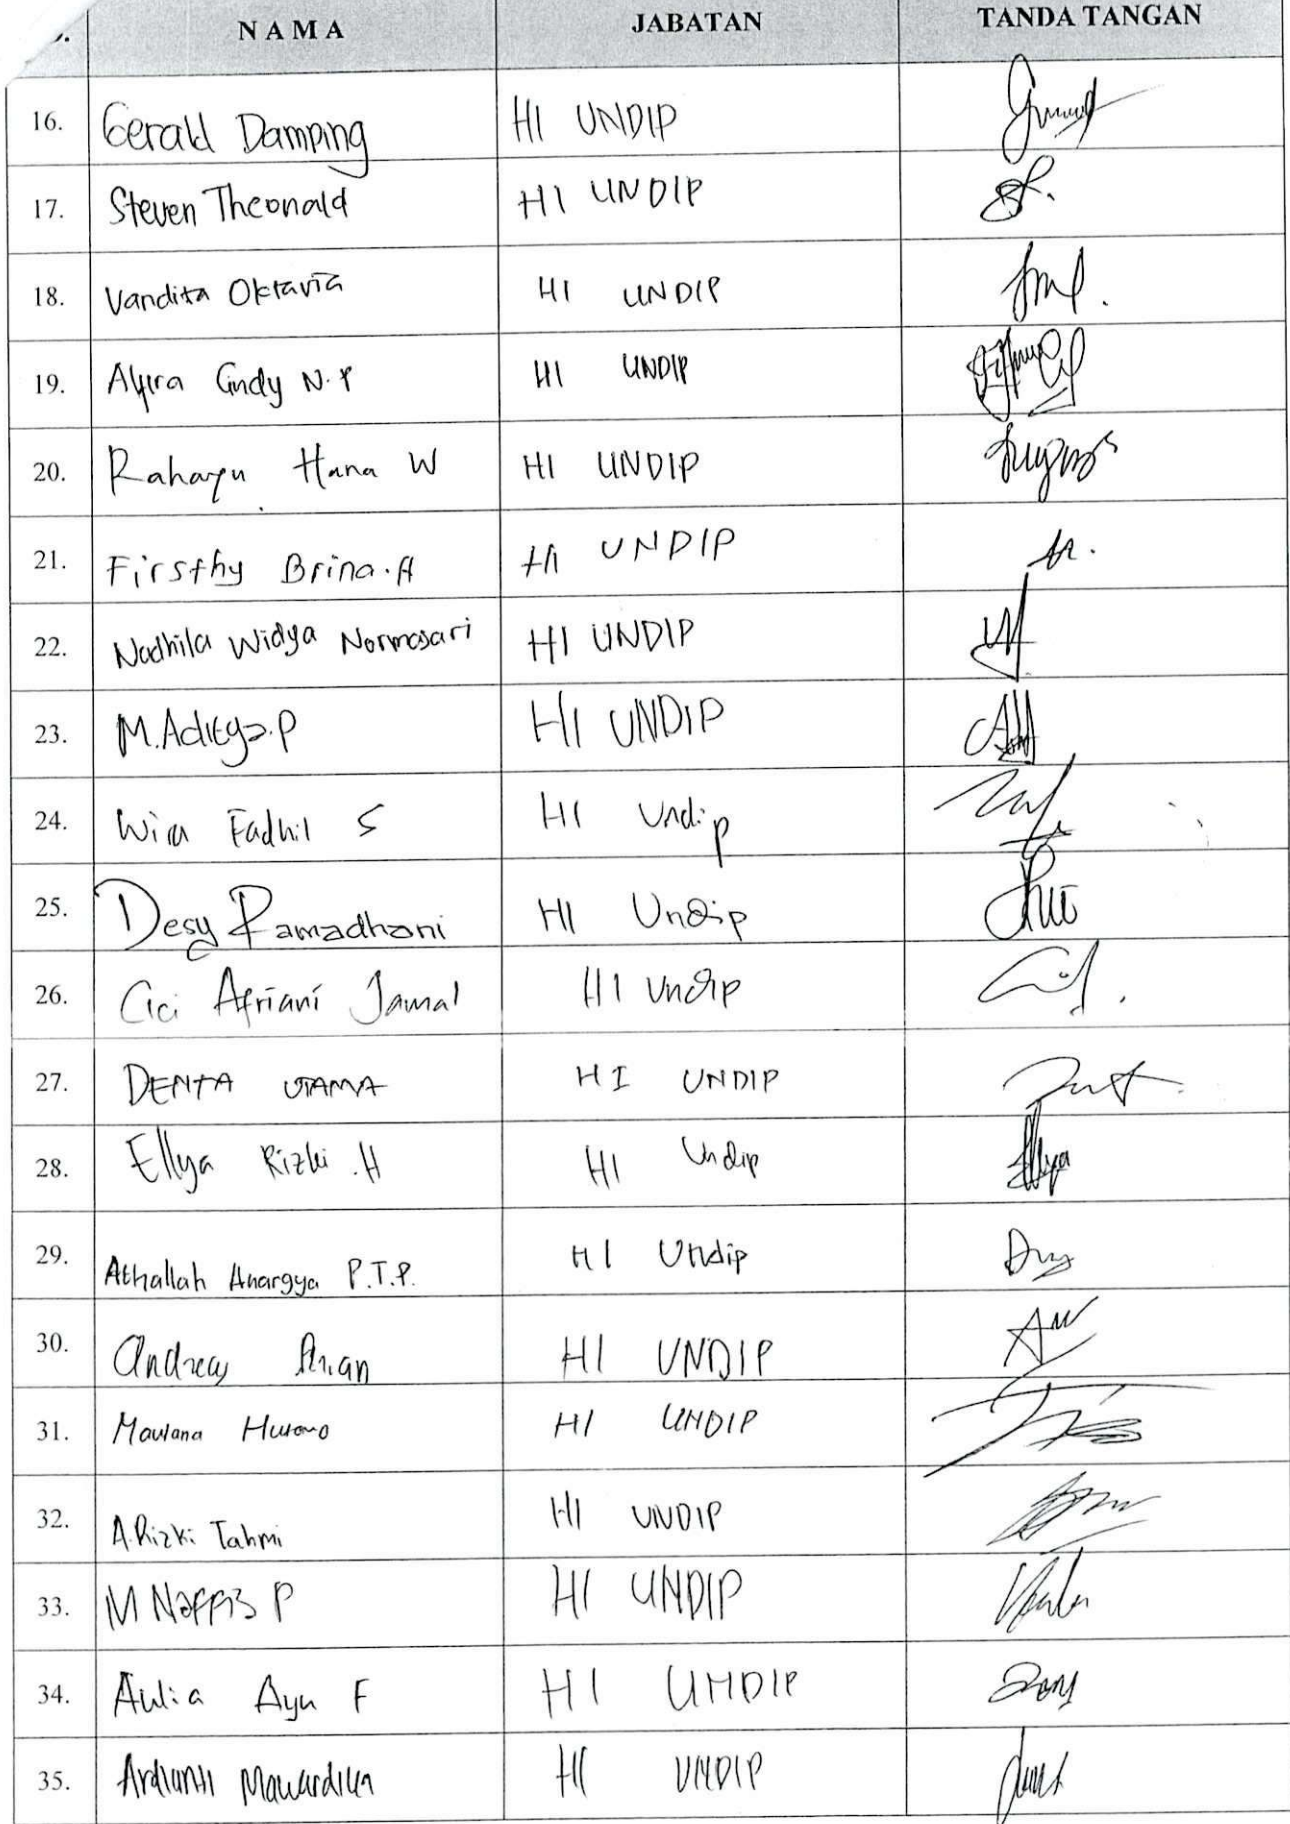 NAMA JABATAN TANDA TANGAN
16. Gerald Damping HI UNDIP
17. Steven Theonald HI UNDIP
18. Vandita Oktavia HI UNDIP
19. Alyira Cindy N.P HI UNDIP
20. Rahayu Hana W HI UNDIP
21. Firsthy Brina.A HI UNDIP
22. Nadhila Widya Normasari HI UNDIP
23. M.Aditya.P HI UNDIP
24. Wira Fadhil S HI Undip
25. Desy Ramadhani HI Undip
26. Cici Afriani Jamal HI Undip
27. DENTA UTAMA HI UNDIP
28. Ellya Rizki .H HI Undip
29. Athallah Anargya P.T.P. HI Undip
30. Andreas Arian HI UNDIP
31. Maulana HI UNDIP
32. A.Rizki Tahmi HI UNDIP
33. M Naffis P HI UNDIP
34. Aulia Ayu F HI UNDIP
35. Ardianti Mawardika HI UNDIP